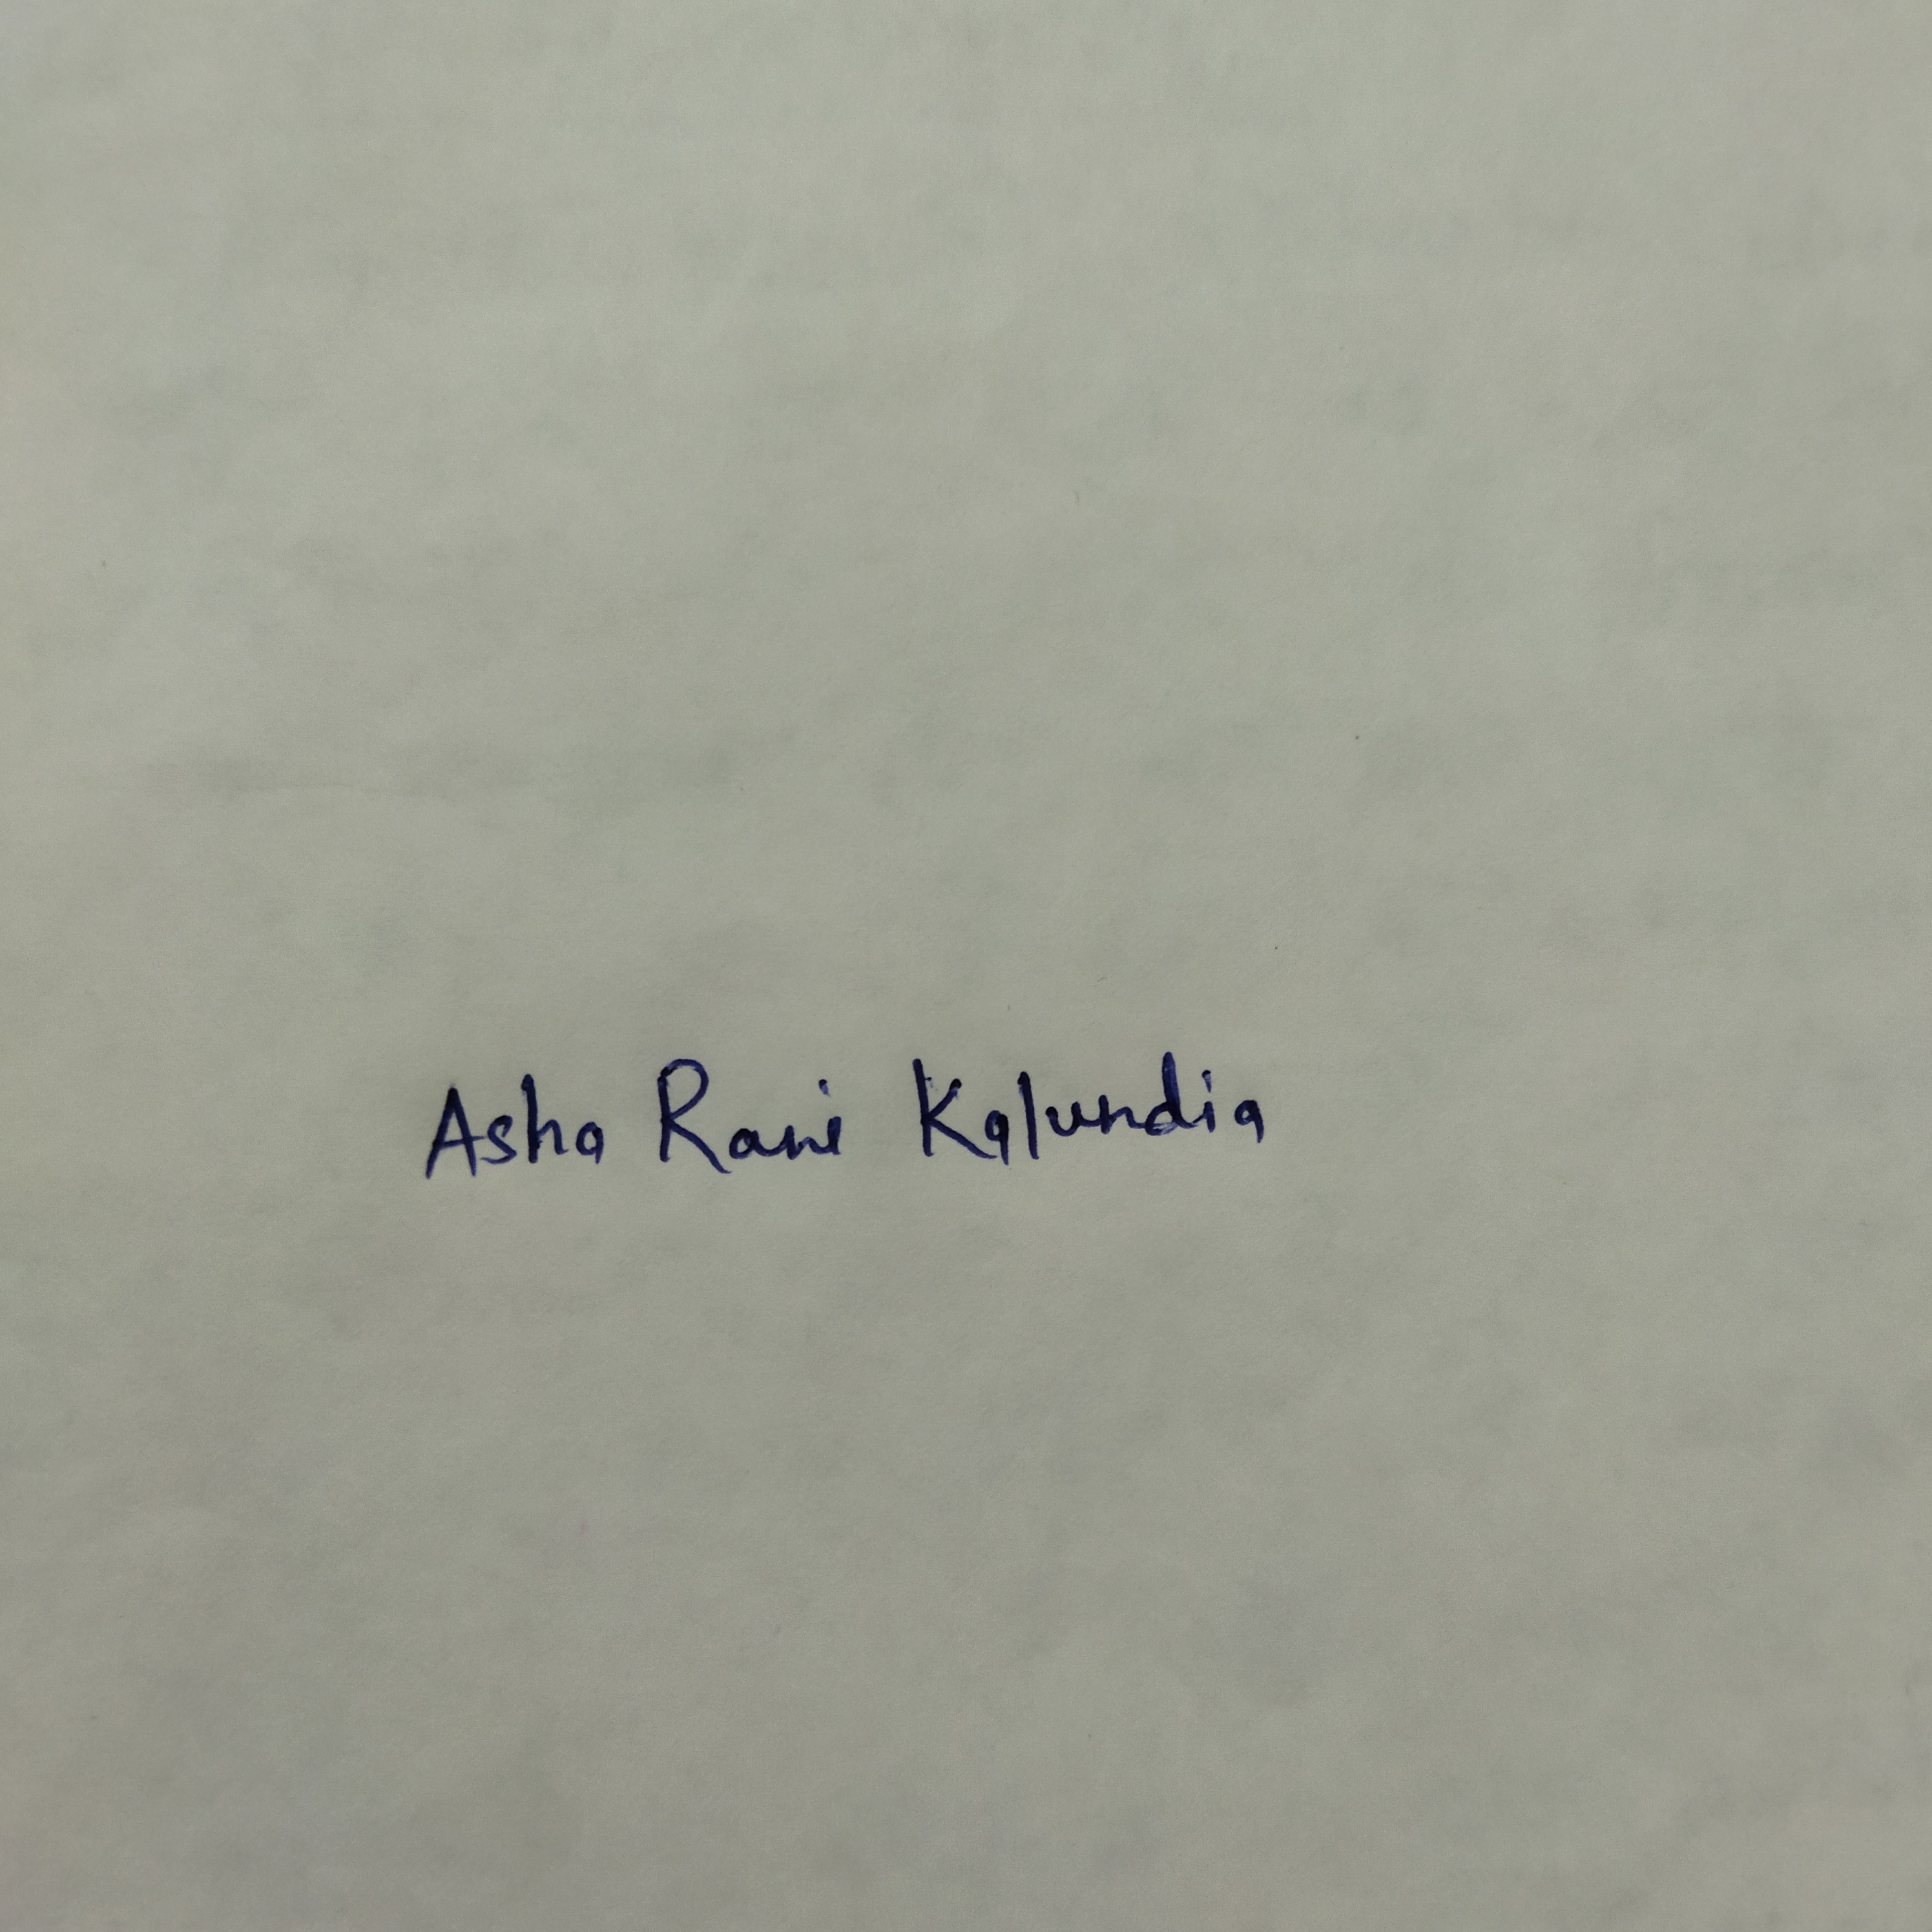 Asha Rani Kalundia